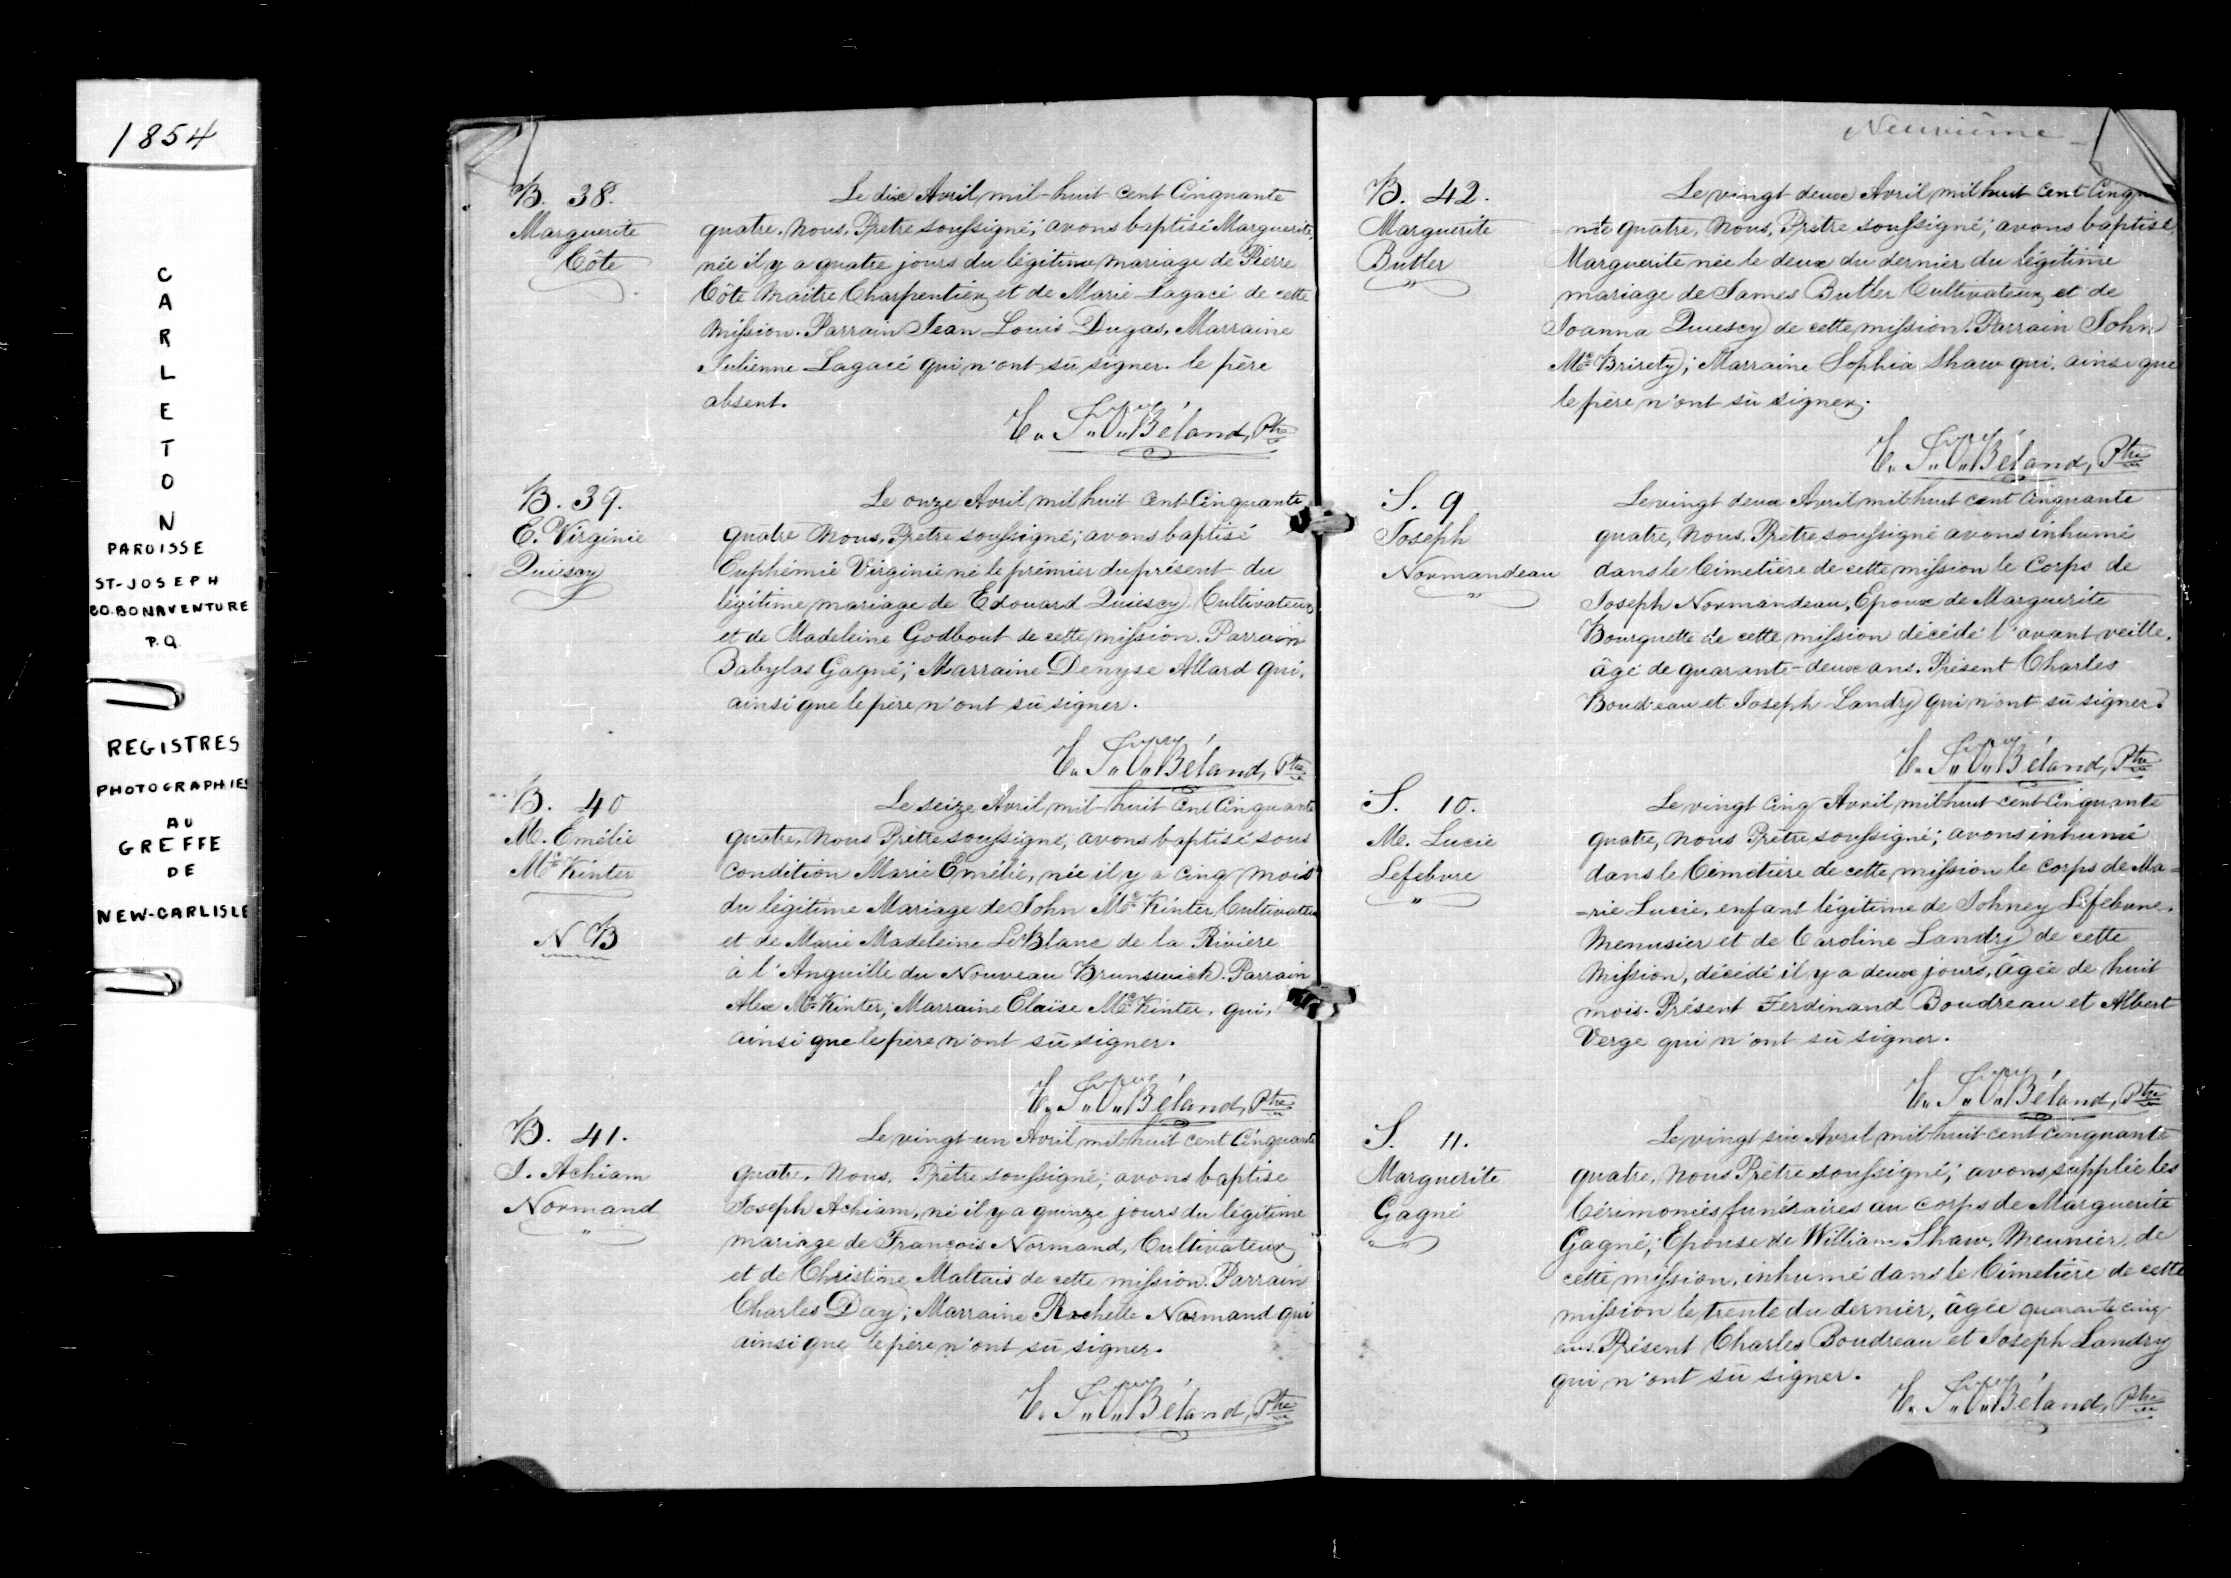 1854
CARLETON
PAROISSE
ST-JOSEPH
CO. BONAVENTURE
P.Q.
REGISTRES
PHOTOGRAPHIES
AU
GREFFE
DE
NEW-CARLISLE
B. 38.
Marguerite
Côte
Le dix Avril mil-huit cent Cinquante
quatre. Nous, Prêtre soussigné; avons baptisé Marguerite,
née il y a quatre jours du légitime mariage de Pierre
Côte Maître Charpentier et de Marie Lagacé de cette
Mission. Parrain Jean Louis Dugas, Marraine
Julienne Lagacé qui n'ont sû signer. le père
absent.
Béland, Ptre
B. 39.
E. Virginie
Quiescy
Le onze Avril mil huit Cent Cinquante
quatre Nous, Prêtre soussigné; avons baptisé
Euphémie Virginie né le prémier du présent du
légitime mariage de Edouard Quiescy Cultivateur
et de Madeleine Godbout de cette mission. Parrain
Babylas Gagné; Marraine Denyse Allard qui,
ainsi que le père n'ont sû signer.
Béland, Ptre
B. 40
M. Emélie
Mc Kinter
N B
Le seize Avril mil-huit Cent Cinquante
quatre, Nous Prêtre soussigné, avons baptisé sous
condition Marie Emélie, née il y a cinq mois
du légitime Mariage de John Mc Kinter, Cultivateur
et de Marie Madeleine LeBlanc de la Rivière
à l'Anguille du Nouveau Brunswick. Parrain
Alex Mc Kinter; Marraine Elaïse Mc Kinter, qui,
ainsi que le père n'ont sû signer.
Béland, Ptre
B. 41.
J. Achiam
Normand
Le vingt-un Avril mil-huit cent Cinquante
quatre, Nous, Prêtre soussigné; avons baptisé
Joseph Achiam, né il y a quinze jours du légitime
mariage de François Normand, Cultivateur
et de Christine Maltais de cette mission. Parrain
Charles Day; Marraine Rachelle Normand qui
ainsi que le père n'ont sû signer.
Béland, Ptre
Neuvième
B. 42.
Marguerite
Butler
Le vingt deux Avril mil huit cent Cinqua
=nte quatre, Nous, Prêtre soussigné; avons baptisé,
Marguerite née le deux du dernier du légitime
mariage de James Butler Cultivateur et de
Joanna Quiescy de cette mission. Parrain John
Mc Brirety; Marraine Sophia Shaw qui, ainsi que
le père n'ont sû signer.
Béland, Ptre
S. 9
Joseph
Normandeau
Le vingt deux Avril mil-huit cent Cinquante
quatre, Nous, Prêtre soussigné avons inhumé
dans le Cimetière de cette mission le Corps de
Joseph Normandeau, Epoux de Marguerite
Bourguette de cette mission décédé l'avant veille,
âgé de quarante-deux ans. Présent Charles
Boudreau et Joseph Landry qui n'ont sû signer.
Béland, Ptre
S. 10.
Me. Lucie
Lefebvre
Le vingt Cinq Avril mil-huit cent Cinquante
quatre, Nous Prêtre soussigné; avons inhumé
dans le Cimetière de cette mission le corps de Ma=
=rie Lucie, enfant légitime de Johney Lefebvre,
Menusier et de Caroline Landry de cette
Mission, décédé il y a deux jours, âgée de huit
mois. Présent Ferdinand Boudreau et Albert
Verge qui n'ont sû signer.
Béland, Ptre
S. 11.
Marguerite
Gagné
Le vingt six Avril mil-huit-cent Cinquante
quatre, Nous Prêtre soussigné; avons supplée les
Cérimonies funéraires au corps de Marguerite
Gagné; Epouse de William Shaw, Meunier, de
cette mission, inhumé dans le Cimetière de cette
mission le trente du dernier, âgée quarante cinq
ans. Présent Charles Boudreau et Joseph Landry
qui n'ont sû signer.
Béland, Ptre